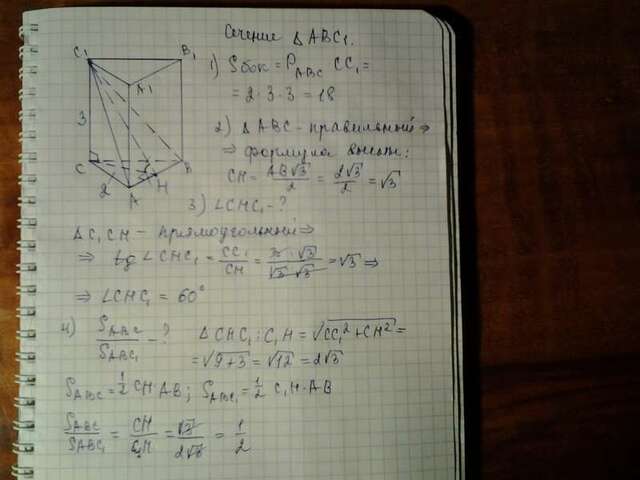 Сечение △ABC₁.
1) Sбок = P_ABC CC₁ =
= 2·3·3 = 18
2) △ABC - правильный ⇒
⇒ формула высоты:
CH = AB√3/2 = 2√3/2 = √3
3) ∠CHC₁ - ?
△C₁CH - прямоугольный ⇒
⇒ tg ∠CHC₁ = CC₁/CH = 3·√3/√3·√3 = √3 ⇒
⇒ ∠CHC₁ = 60°
4) S_ABC/S_ABC₁ - ? △CHC₁: C₁H = √CC₁² + CH² =
= √9+3 = √12 = 2√3
S_ABC = 1/2 CH·AB; S_ABC₁ = 1/2 C₁H·AB
S_ABC/S_ABC₁ = CH/C₁H = √3/2√3 = 1/2
C₁ B₁
A1
3
C B
2 H
A